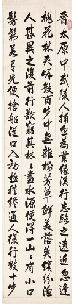 晉太原中武陵人捕魚為業緣溪行忘路之遠近忽逢
桃花林夾岸數百步中無雜樹芳草鮮美落英繽紛漁
人甚異之復前行欲窮其林林盡水源便得一山山有小口
髣髴若有光便捨船從口入初極狹纔通人復行數十步